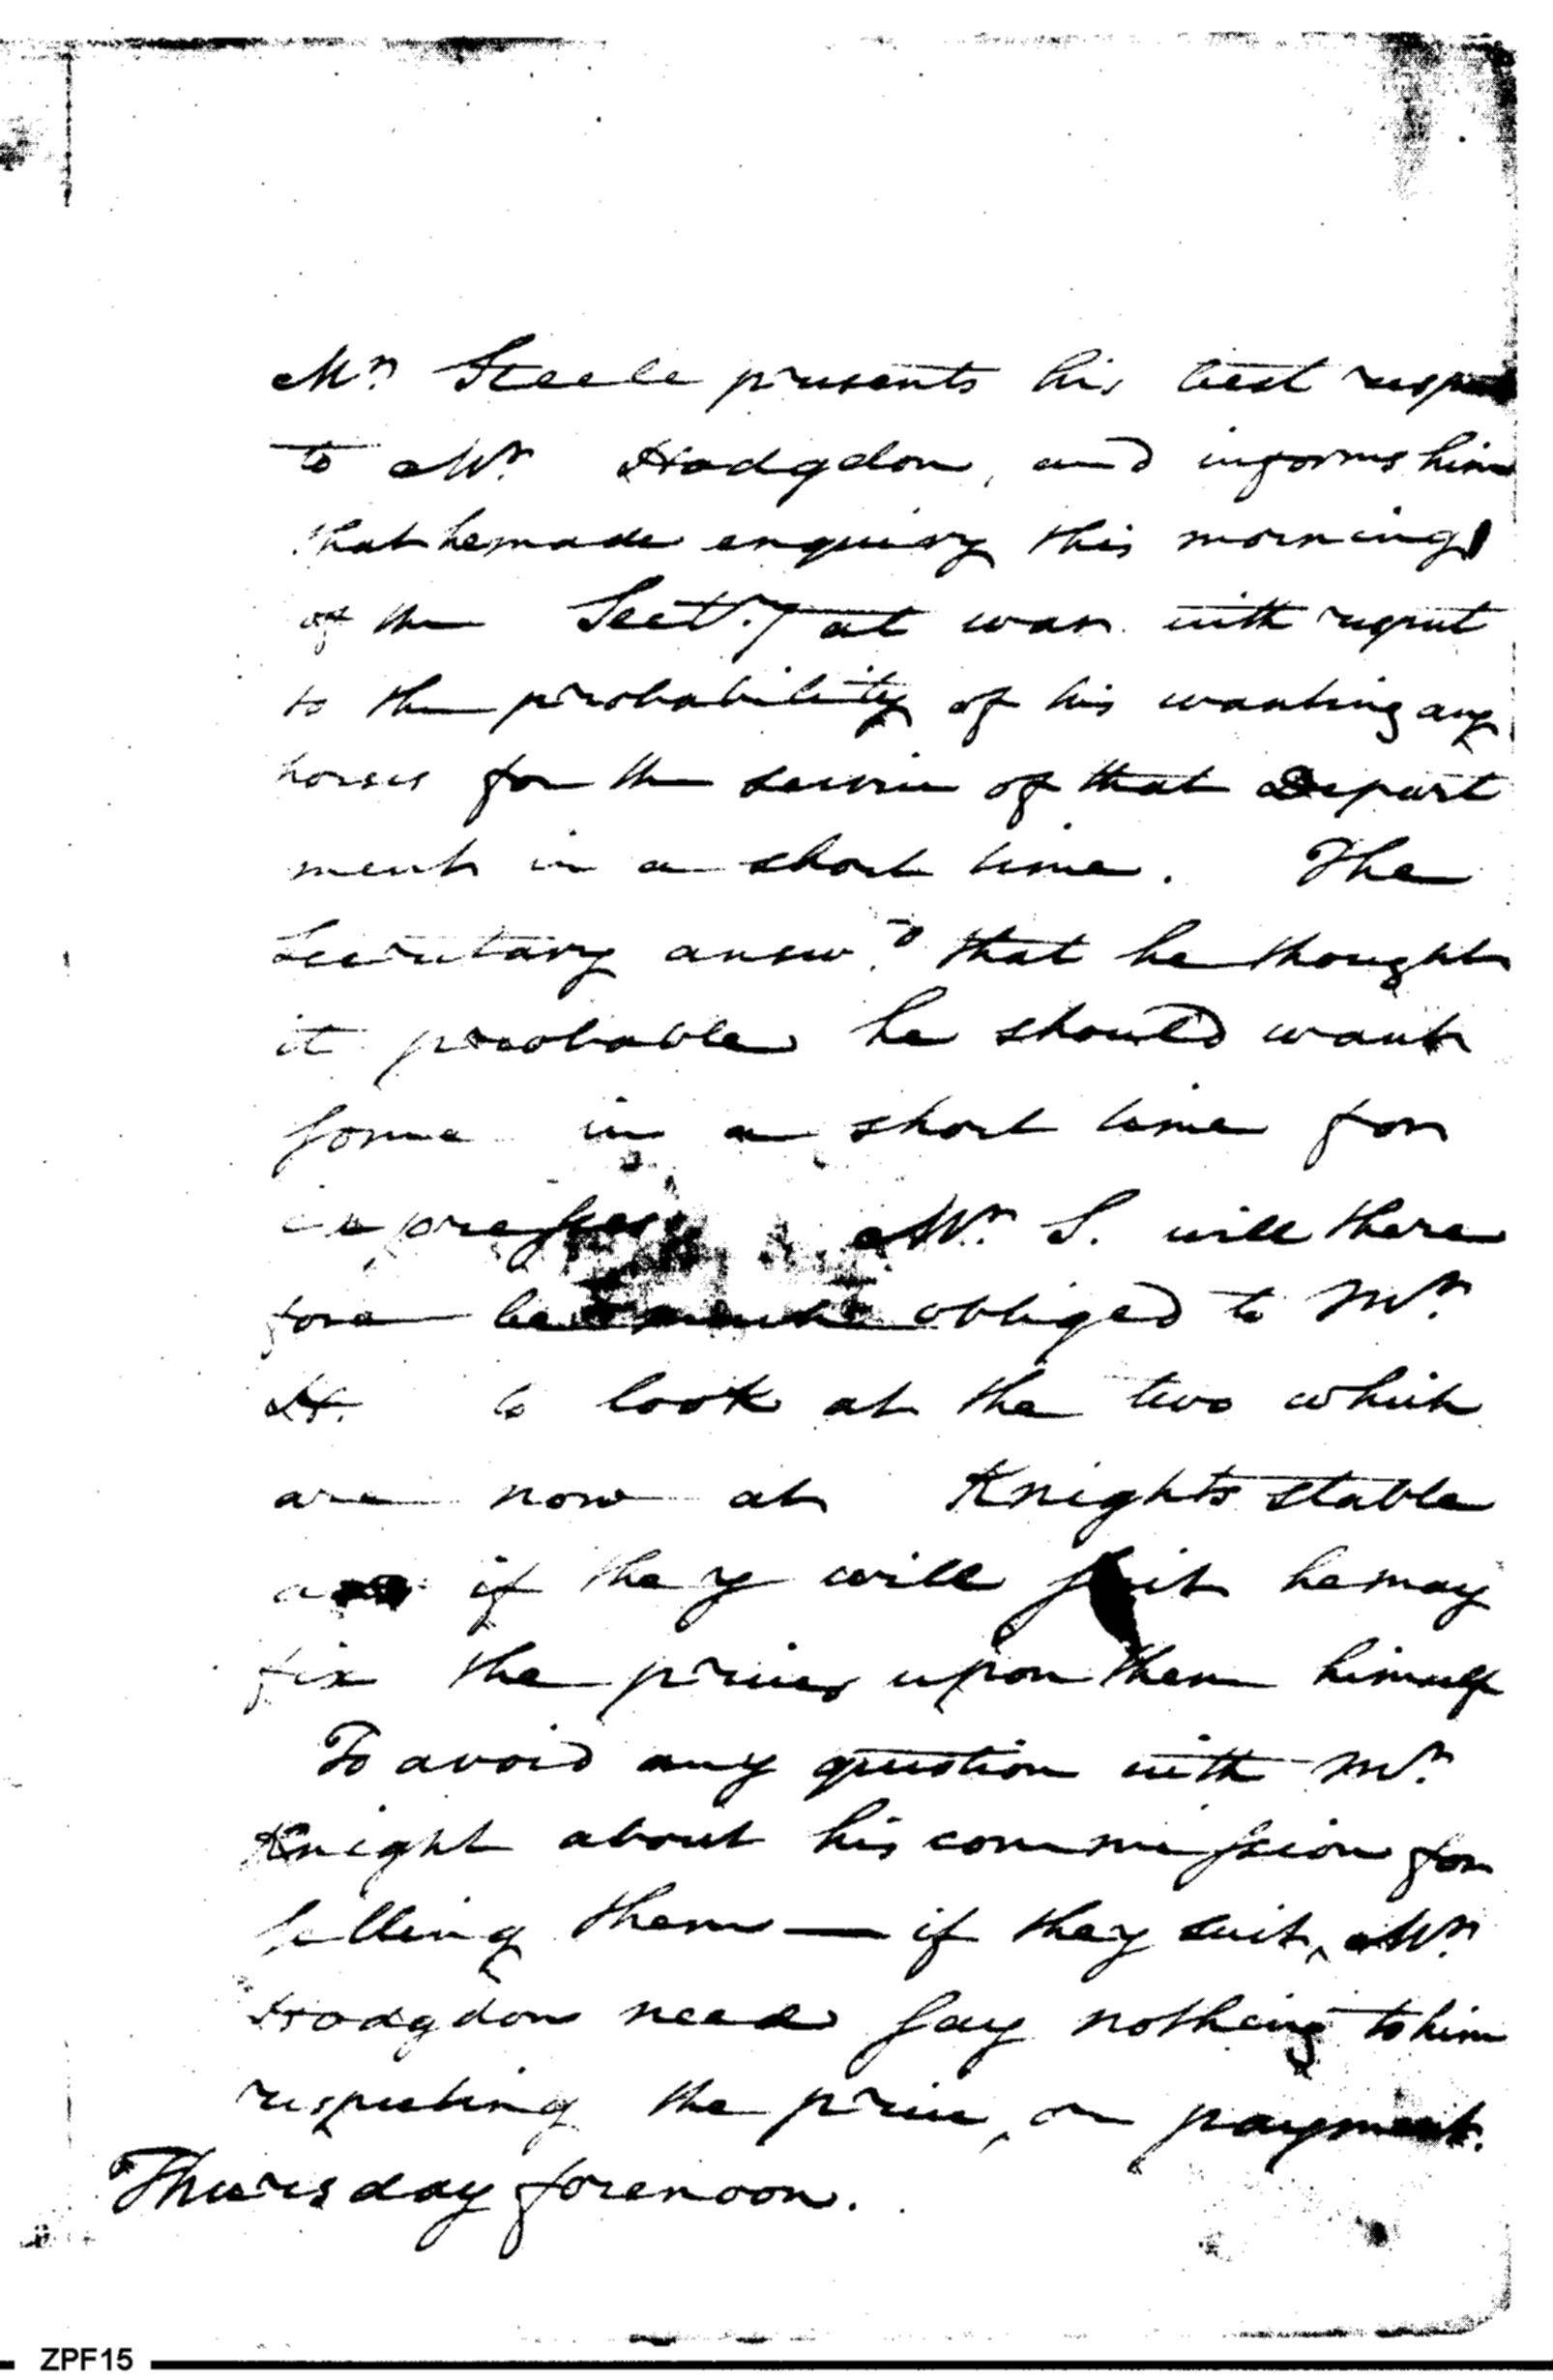 Mr. Steele presents his best respects
to Mr. Hodgdon, and informs him
that he made enquiry this morning
of the Secty. at war with respect
to the probability of his wanting any
horses for the service of that Depart
ment in a short time. The
Secretary answd. that he thought
it probable he should want
some in a short time for
expresses. Mr. S. will there
fore be much obliged to Mr.
H. to look at the two which
are now at Knights stable
and if they will suit he may
fix the prices upon them himself
To avoid any question with Mr.
Knight about his commission for
selling them — if they suit, Mr.
Hodgdon need say nothing to him
respecting the price, or payment.
Thursday forenoon.
ZPF15